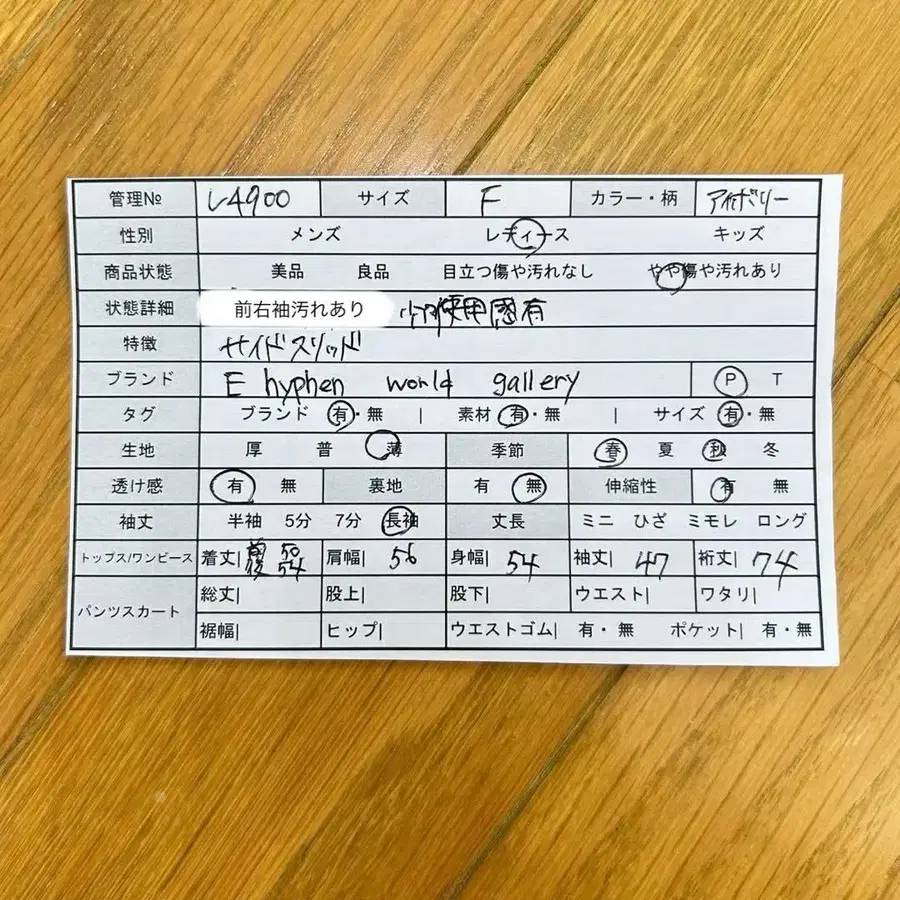 管理№ レ4900 サイズ F カラー・柄 アイボリー
性別 メンズ レディース キッズ
商品状態 美品 良品 目立つ傷や汚れなし やや傷や汚れあり
状態詳細 前右袖汚れあり 使用感有
特徴 サイドスリッド
ブランド E hyphen world gallery P T
タグ ブランド 有・無 | 素材 有・無 | サイズ 有・無
生地 厚 普 薄 季節 春 夏 秋 冬
透け感 有 無 裏地 有 無 伸縮性 有 無
袖丈 半袖 5分 7分 長袖 丈長 ミニ ひざ ミモレ ロング
トップス/ワンピース 着丈| 前50 後54 肩幅| 56 身幅| 54 袖丈| 47 裄丈| 74
パンツスカート 総丈| 股上| 股下| ウエスト| ワタリ|
裾幅| ヒップ| ウエストゴム| 有・無 ポケット| 有・無